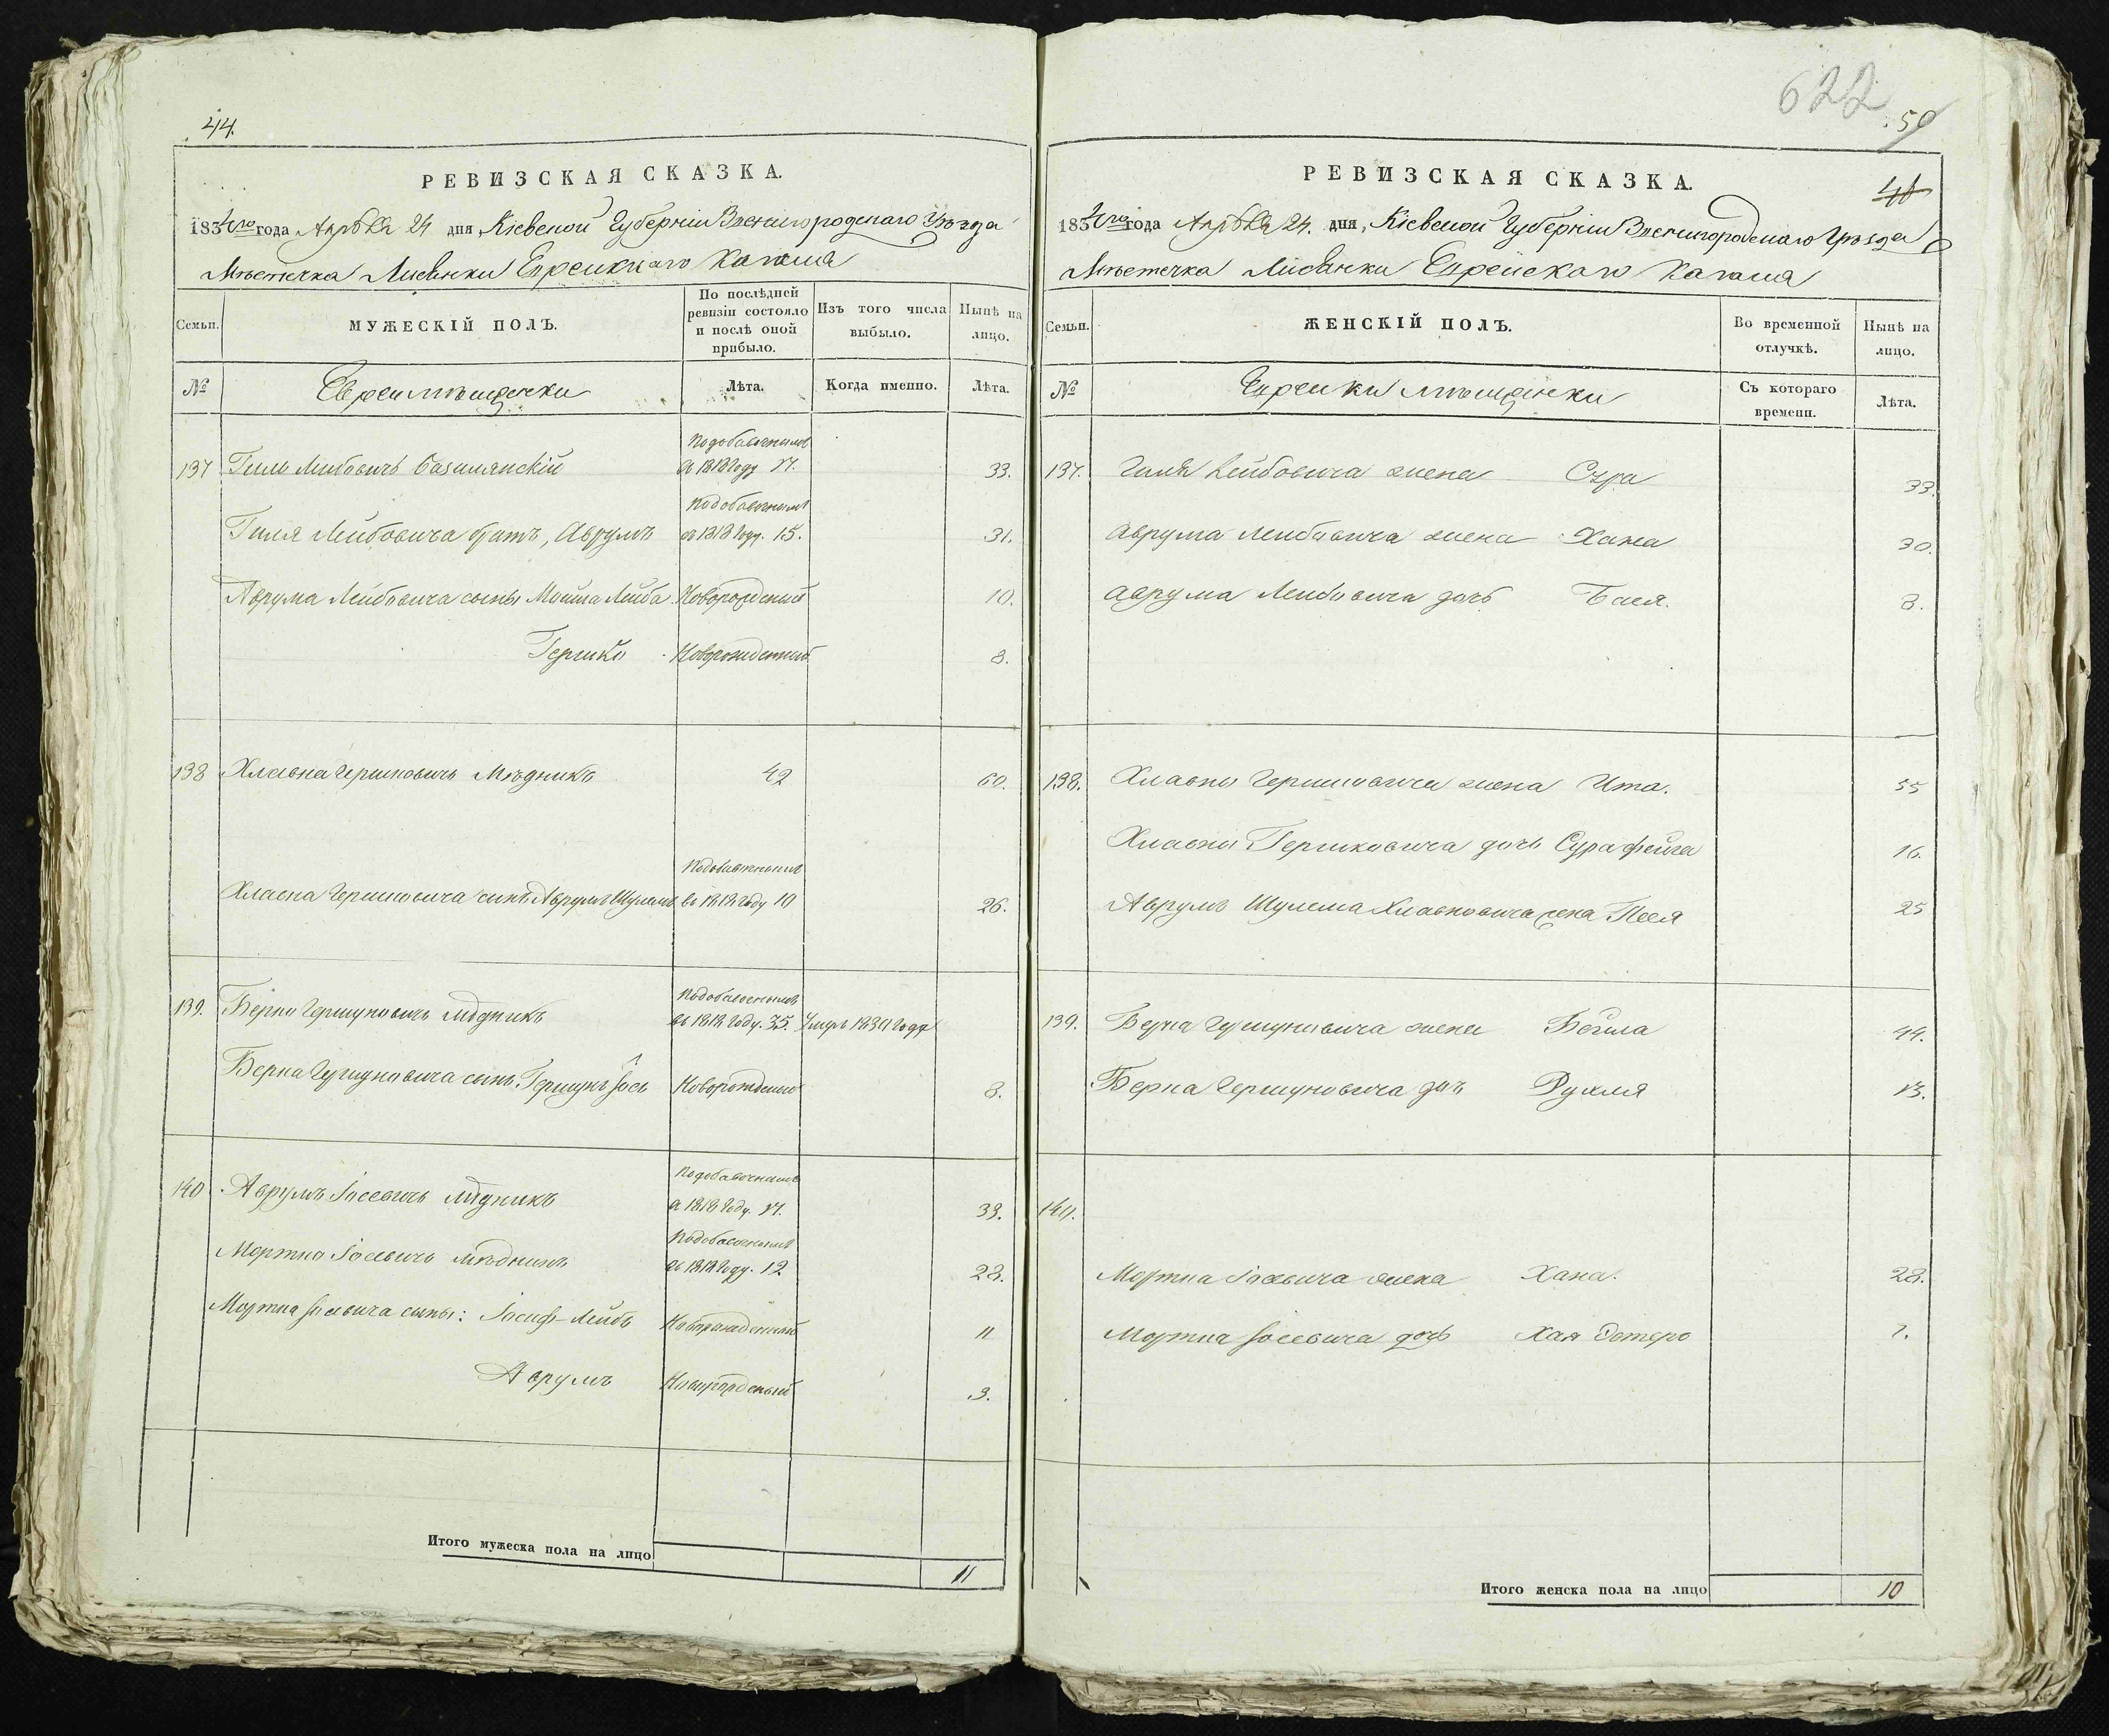 44.
РЕВИЗСКАЯ СКАЗКА.
1834го года Апрѣля 24 дня, Кіевской Губерніи Звенигородскаго Уѣзда
Мѣстечка Лисянки Еврейскаго Кагала
Семьи.
МУЖЕСКІЙ ПОЛЪ.
По послѣдней ревизіи состояло и послѣ оной прибыло.
Изъ того числа выбыло.
Нынѣ на лицо.
№
Евреи мѣщенки
Лѣта.
Когда именно.
Лѣта.
137 Гиль Лейбовичъ Базилянскій подобавочнымъ в 1818 году 17. 33.
Гиля Лейбовича братъ, Аврумъ подобавочнымъ въ 1818 году. 15. 31.
Аврума Лейбовича сыны Мошко Лейба Новорожденый 10.
Гершко Новорожденный 8.
138 Хлавна Гершковичъ Мѣдникъ 42 60.
Хлавна Гершковича сынъ Аврумъ Шулемъ подобавочнымъ въ 1818 году 10 26.
139. Берко Гершуновичъ мѣдникъ подобавочнымъ въ 1818 году. 35. Умеръ 1830 года
Берка Гершуновича сынъ, Гершунъ Іось Новорожденый 8.
140 Аврумъ Іосевичъ мѣдникъ подобавочнымъ в 1818 году. 17. 33.
Мортко Іосевичъ мѣдникъ подобавочнымъ въ 1818 году. 12 28.
Мортка Іосевича сыны: Іосиф-Лейбъ Новорожденный 11
Аврумъ Новорожденый 3.
Итого мужеска пола на лицо 11
622
59
41
РЕВИЗСКАЯ СКАЗКА.
1834го года Апрѣля 24. дня, Кіевской Губерніи Звенигородскаго Уѣзда
Мѣстечка Лисянки Еврейскаго Кагала
Семьи.
ЖЕНСКІЙ ПОЛЪ.
Во временной отлучкѣ.
Нынѣ на лицо.
№
Еврейки мѣщенки
Съ котораго времени.
Лѣта.
137. Гиля Лейбовича жена Сура 33.
Аврума Лейбовича жена Хана 30.
Аврума Лейбовича дочь Бася. 8.
138. Хлавны Гершковича жена Ита. 55
Хлавны Гершковича дочь Сура фейга 16.
Аврумъ Шулема Хлавновича жена Песя 25
139. Берка Гершуновича жена Бейла 44.
Берка Гершуновича дочь Рухля 13.
140.
Мортка Іосевича жена Хана. 28.
Мортка Іосевича дочь Хая Эстера 7.
Итого женска пола на лицо 10